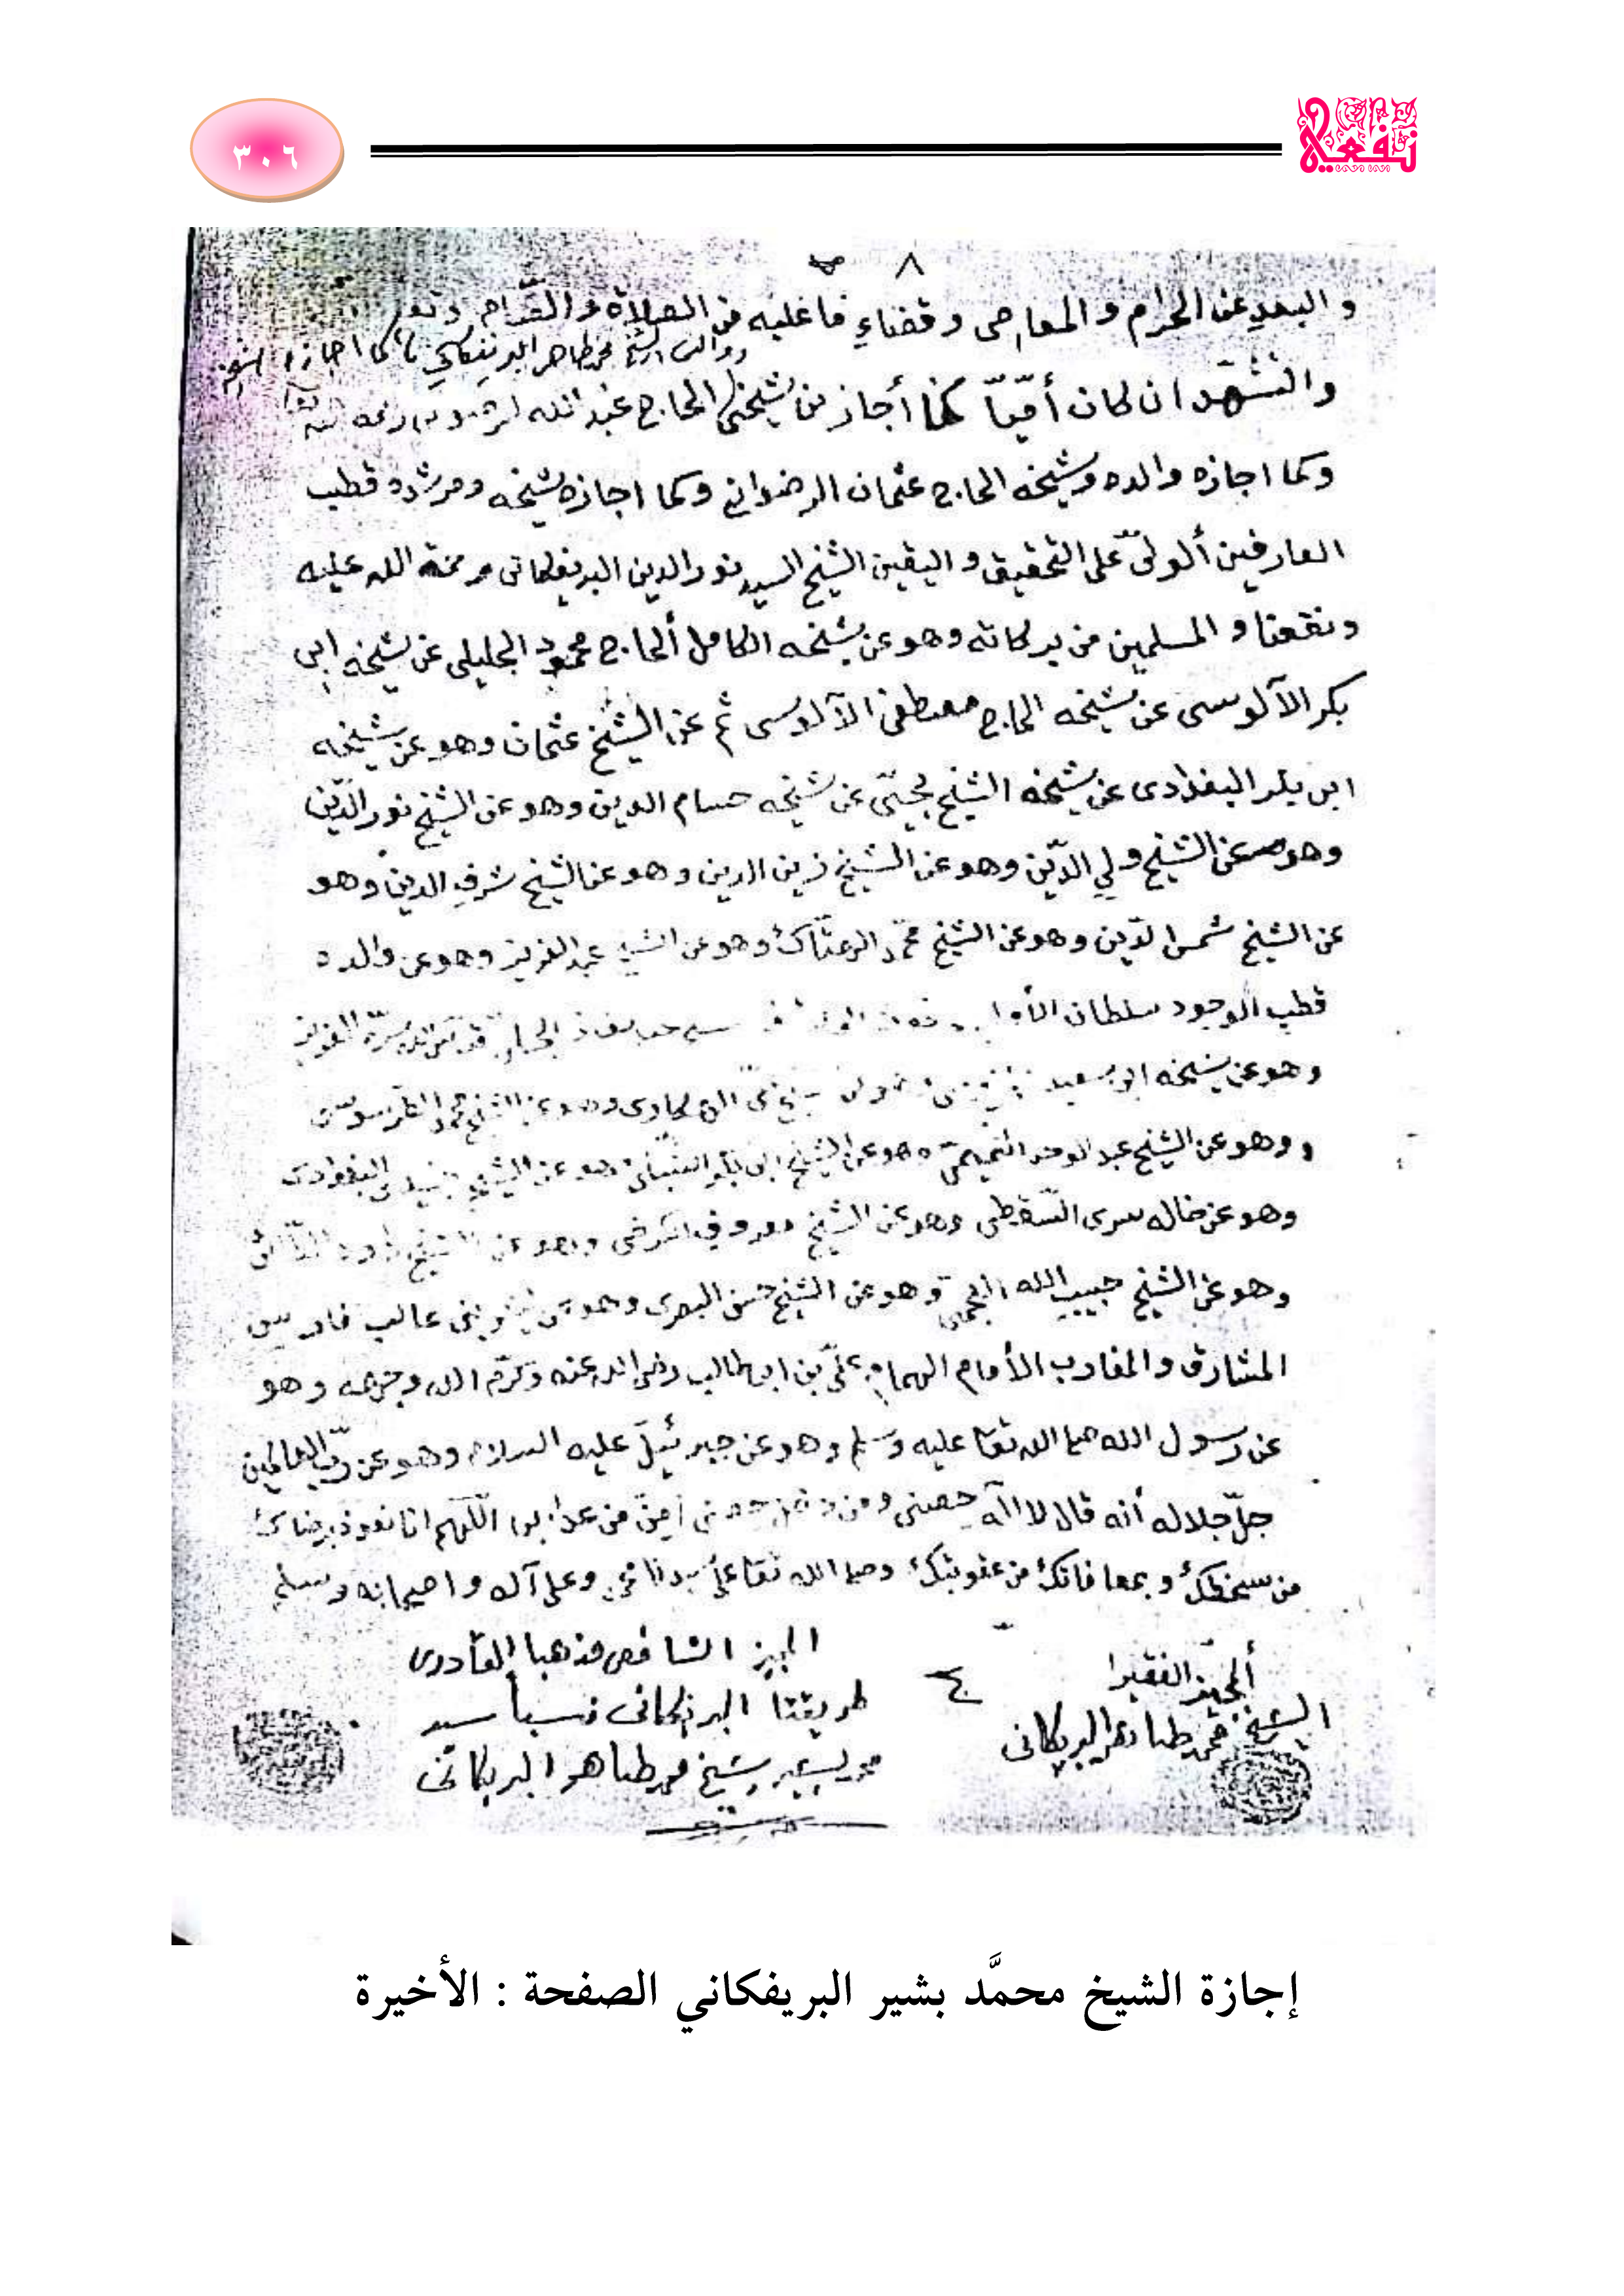 ٣٠٦
نفعية
٨
والبعد عن الحرام والمعاصى وقضاء ما عليه من الصلاة والصيام
ووالدى الشيخ محمد طاهر البريفكاني كما اجازه الشيخ
والتشهد ان كان أميّاً كما أجازني شيخى الحاج عبد الله رحمه الله
وكما اجازه والده وشيخه الحاج عثمان الرضوانى وكما اجازه شيخه ومرشده قطب
العارفين ألولىّ على التحقيق واليقين الشيخ السيد نورالدين البريفكانى رحمة الله عليه
ونفعنا والمسلمين من بركاته وهو عن شيخه الكامل ألحاج محمود الجليلى عن شيخه ابى
بكر الآلوسى عن شيخه الحاج مصطفى الآلوسى ثم عن الشيخ عثمان وهو عن شيخه
ابى بكر البغدادى عن شيخه الشيخ يحيىّ عن شيخه حسام الدين وهو عن الشيخ نور الدّين
وهو عن الشيخ ولي الدّين وهو عن الشيخ زين الدين وهو عن الشيخ شرف الدين وهو
عن الشيخ شمس الدّين وهو عن الشيخ محمّد الهتّاك وهو عن الشيخ عبد العزيز وهو عن والده
قطب الوجود سلطان الأوليا قدس الله سرّه العزيز
وهو عن شيخه ابو سعيد الهكارى وهو عن الشيخ محمد الطرسوسى
و وهو عن الشيخ عبد الوحد التميمىّ وهو عن الشيخ ابى بكر الشبلى وهو عن الشيخ جنيد البغدادى
وهو عن خاله سرى السّقطى وهو عن الشيخ معروف الكرخى وهو عن الشيخ داود الطّائى
وهو عن الشيخ حبيب الله العجمى وهو عن الشيخ حسن البصرى وهو عن بنى غالب فارس
المشارق والمغارب الأمام الهمام علىّ بن ابى طالب رضى الله عنه وكرّم الله وجهه وهو
عن رسول الله صلى الله تعا عليه وسلم وهو عن جبرئيل عليه السلام وهو عن ربّ العالمين
جلّ جلاله أنه قال لا اله حصنى ومن دخل حصنى أمن من عذابى اللّهم انا نعوذ برضاك
من سخطك وبمعافاتك من عقوبتك وصلى الله تعا على سيدنا محمد وعلى آله واصحابه وسلم
ألمجيز الفقير
الشيخ محمد طاهر البريكانى
المجيز الشافعى مذهبا القادرى
طريقتاً البريكانى نسباً سيد
محمد بشير شيخ محمد طاهر البريكانى
إجازة الشيخ محمَّد بشير البريفكاني الصفحة : الأخيرة